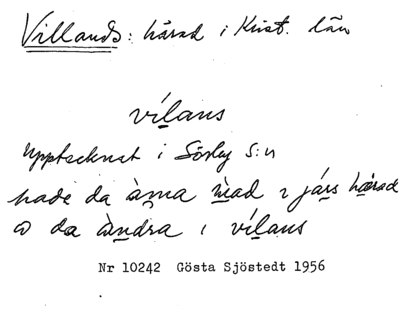 Villands: härad i Krist. län
vílans
Upptecknat i Sörby s:n
hade da àma i járs härad
o da àndra i vílans
Nr 10242 Gösta Sjöstedt 1956